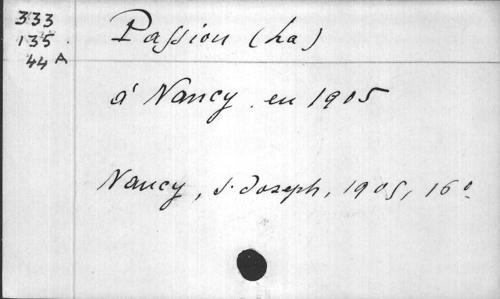 333
135
44 A
Passion (La)
à Nancy en 1905
Nancy, S. Joseph, 1905, 16°